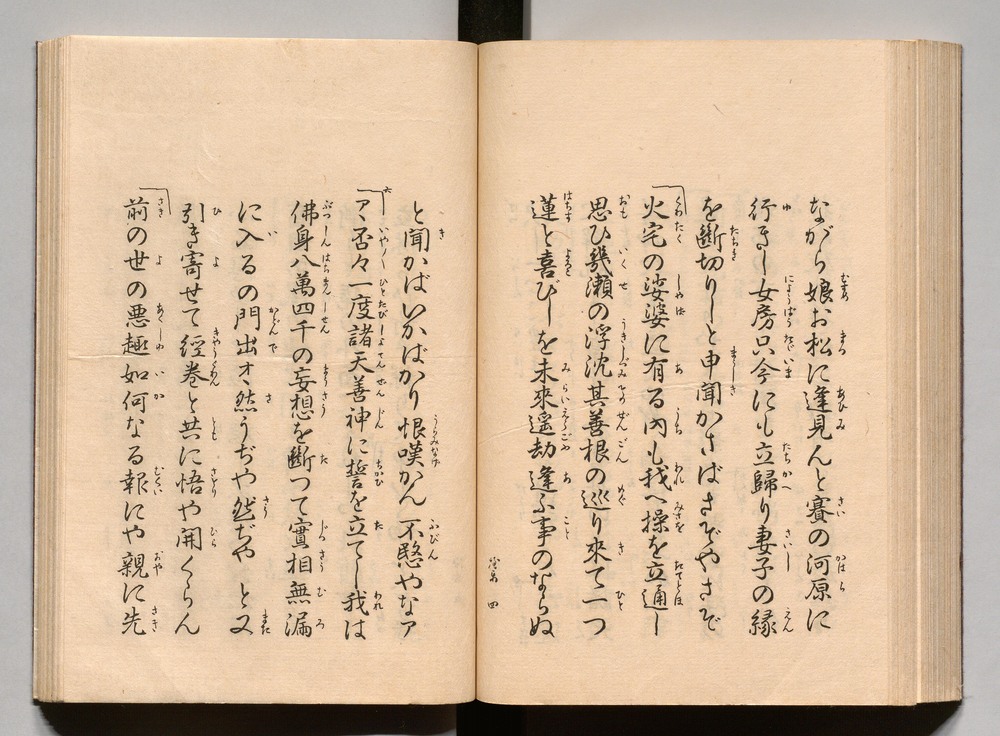 ながら娘お松に逢見んと賽の河原に
行きし女房只今にも立歸り妻子の縁
を斷切りしと申聞かさばさぞやさぞ
火宅の娑婆に有る内も我へ操を立通し
思ひ幾瀬の浮沈其善根の巡り來て一つ
蓮と喜びしを未來遥劫逢ふ事のならぬ
四
と聞かばいかばかり恨嘆かん不愍やなア
アヽ否々一度諸天善神に誓を立てし我は
佛身八萬四千の妄想を斷つて實相無漏
に入るの門出オヽ然うぢや然ぢや と又
引き寄せて經巻と共に悟や開くらん
前の世の悪趣如何なる報にや親に先